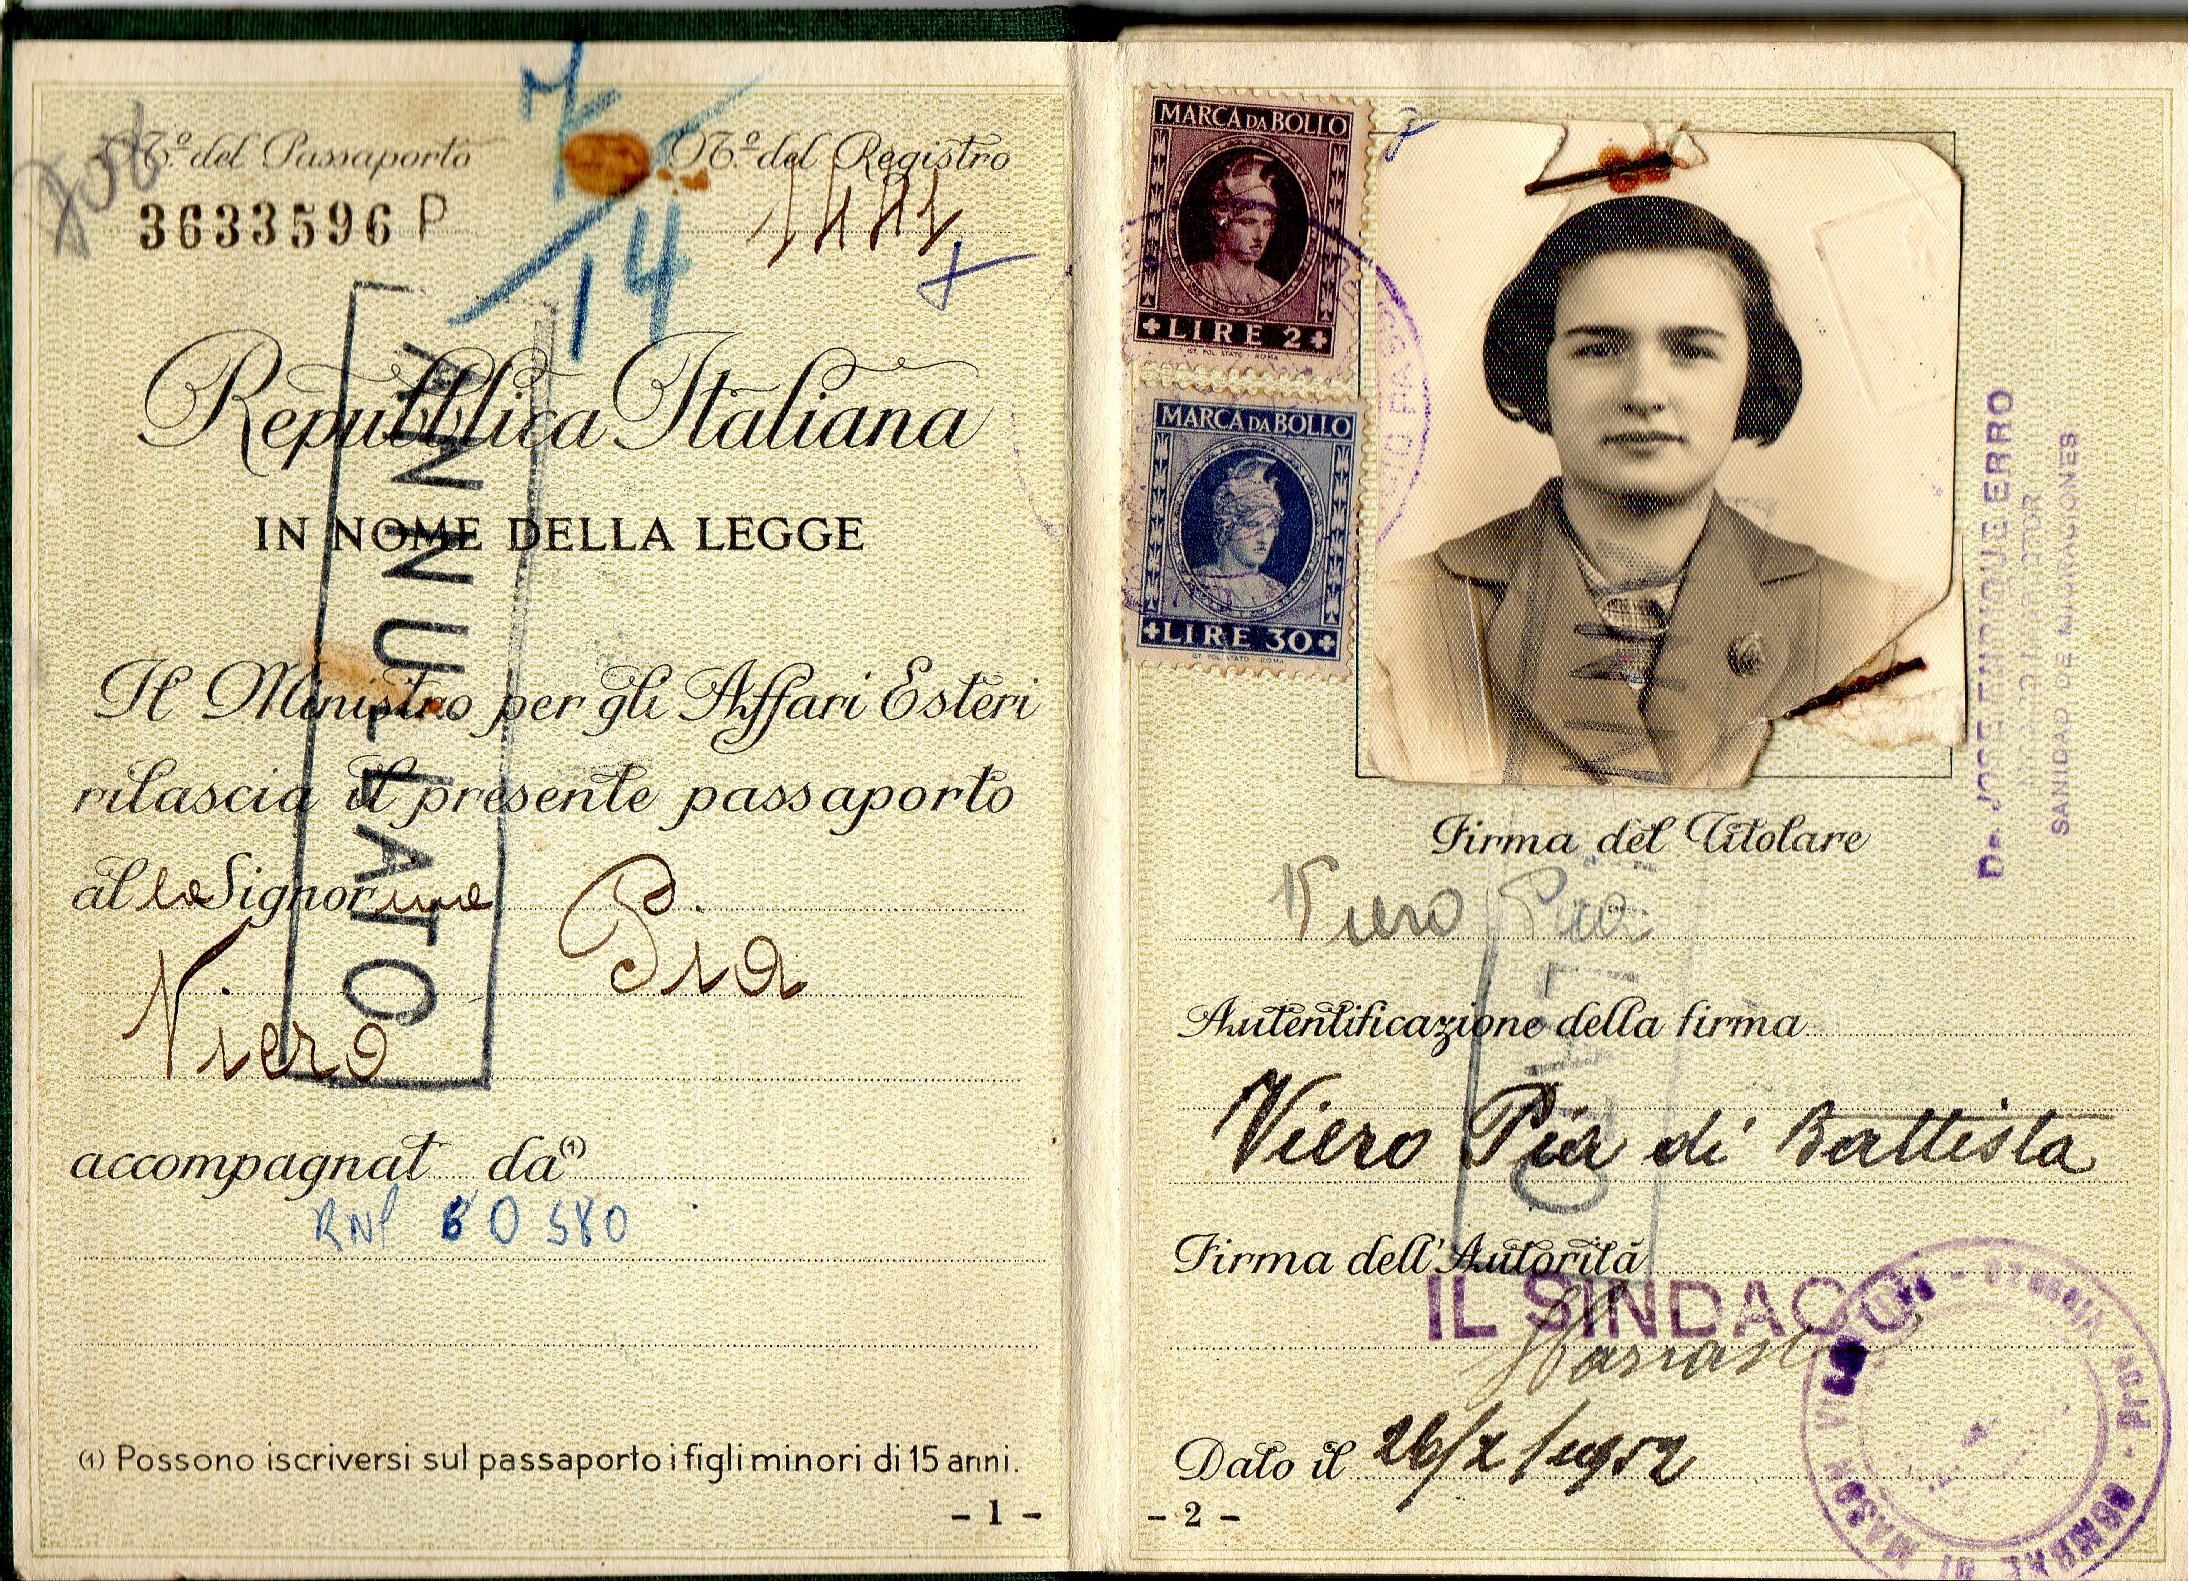 N.º del Passaporto
3633596 P
N.º del Registro
7/14
Repubblica Italiana
IN NOME DELLA LEGGE
Il Ministro per gli Affari Esteri
rilascia il presente passaporto
al la Signorina Pia
Viero
accompagnat da (1)
80580
(1) Possono iscriversi sul passaporto i figli minori di 15 anni.
- 1 -
ANNULLATO
MARCA DA BOLLO
LIRE 2
IST. POL. STATO - ROMA
MARCA DA BOLLO
LIRE 30
IST. POL. STATO - ROMA
Dr. JOSE ENRIQUE ERRO
SANIDAD DE MIGRACIONES
Firma del Titolare
Viero Pia
Autentificazione della firma
Viero Pia di Battista
Firma dell'Autorità
IL SINDACO
Dato il 26/
- 2 -
COMUNE DI MASON VICENTINO